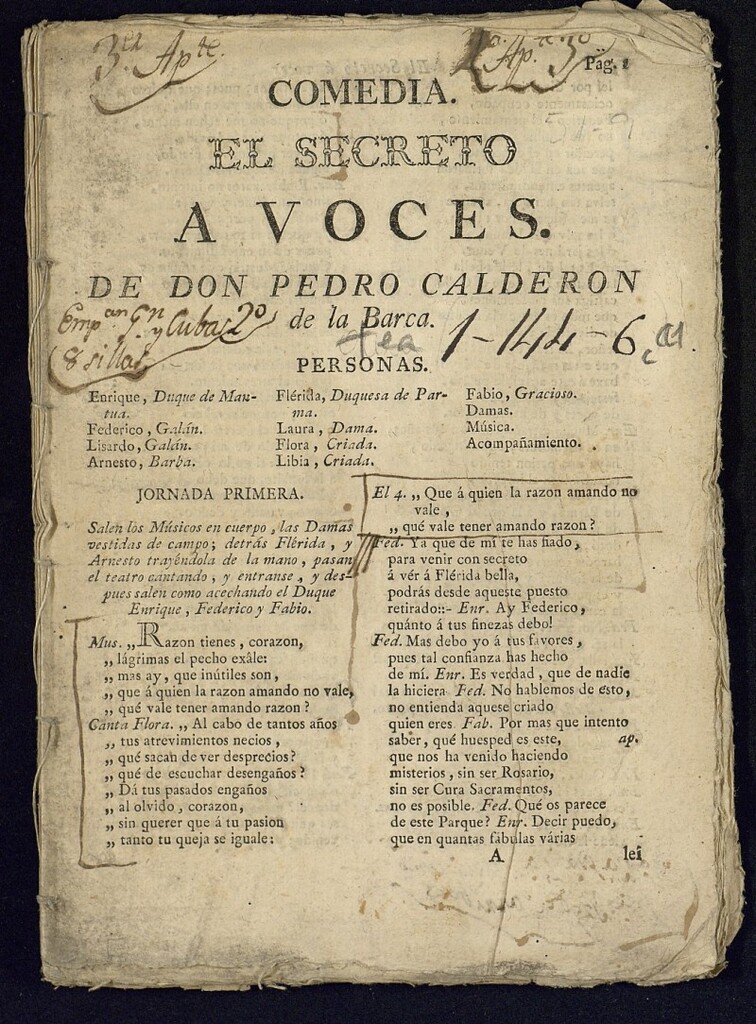 3.ª Ap.te
Ap.te 3º
Pág. 1
COMEDIA.
EL SECRETO
A VOCES.
DE DON PEDRO CALDERON
de la Barca.
Emp.an G.n y Cubas 2º
8 sillas
1-144-6, a1
PERSONAS.
Enrique, Duque de Man-
tua.
Federico, Galán.
Lisardo, Galán.
Arnesto, Barba.
Flérida, Duquesa de Par-
ma.
Laura, Dama.
Flora, Criada.
Libia, Criada.
Fabio, Gracioso.
Damas.
Música.
Acompañamiento.
JORNADA PRIMERA.
Salen los Músicos en cuerpo, las Damas
vestidas de campo; detrás Flérida, y
Arnesto trayéndola de la mano, pasan
el teatro cantando, y entranse, y des-
pues salen como acechando el Duque
Enrique, Federico y Fabio.
Mus. ,, Razon tienes, corazon,
,, lágrimas el pecho exâle:
,, mas ay, que inútiles son,
,, que á quien la razon amando no vale,
,, qué vale tener amando razon?
Canta Flora. ,, Al cabo de tantos años
,, tus atrevimientos necios,
,, qué sacan de ver desprecios?
,, qué de escuchar desengaños?
,, Dá tus pasados engaños
,, al olvido, corazon,
,, sin querer que á tu pasion
,, tanto tu queja se iguale:
El 4. ,, Que á quien la razon amando no
vale,
,, qué vale tener amando razon?
Fed. Ya que de mí te has fiado,
para venir con secreto
á vér á Flérida bella,
podrás desde aqueste puesto
retirado::- Enr. Ay Federico,
quánto á tus finezas debo!
Fed. Mas debo yo á tus favores,
pues tal confianza has hecho
de mí. Enr. Es verdad, que de nadie
la hiciera Fed. No hablemos de esto,
no entienda aquese criado
quien eres. Fab. Por mas que intento
saber, qué huesped es este, ap.
que nos ha venido haciendo
misterios, sin ser Rosario,
sin ser Cura Sacramentos,
no es posible. Fed. Qué os parece
de este Parque? Enr. Decir puedo,
que en quantas fábulas várias
A
leí